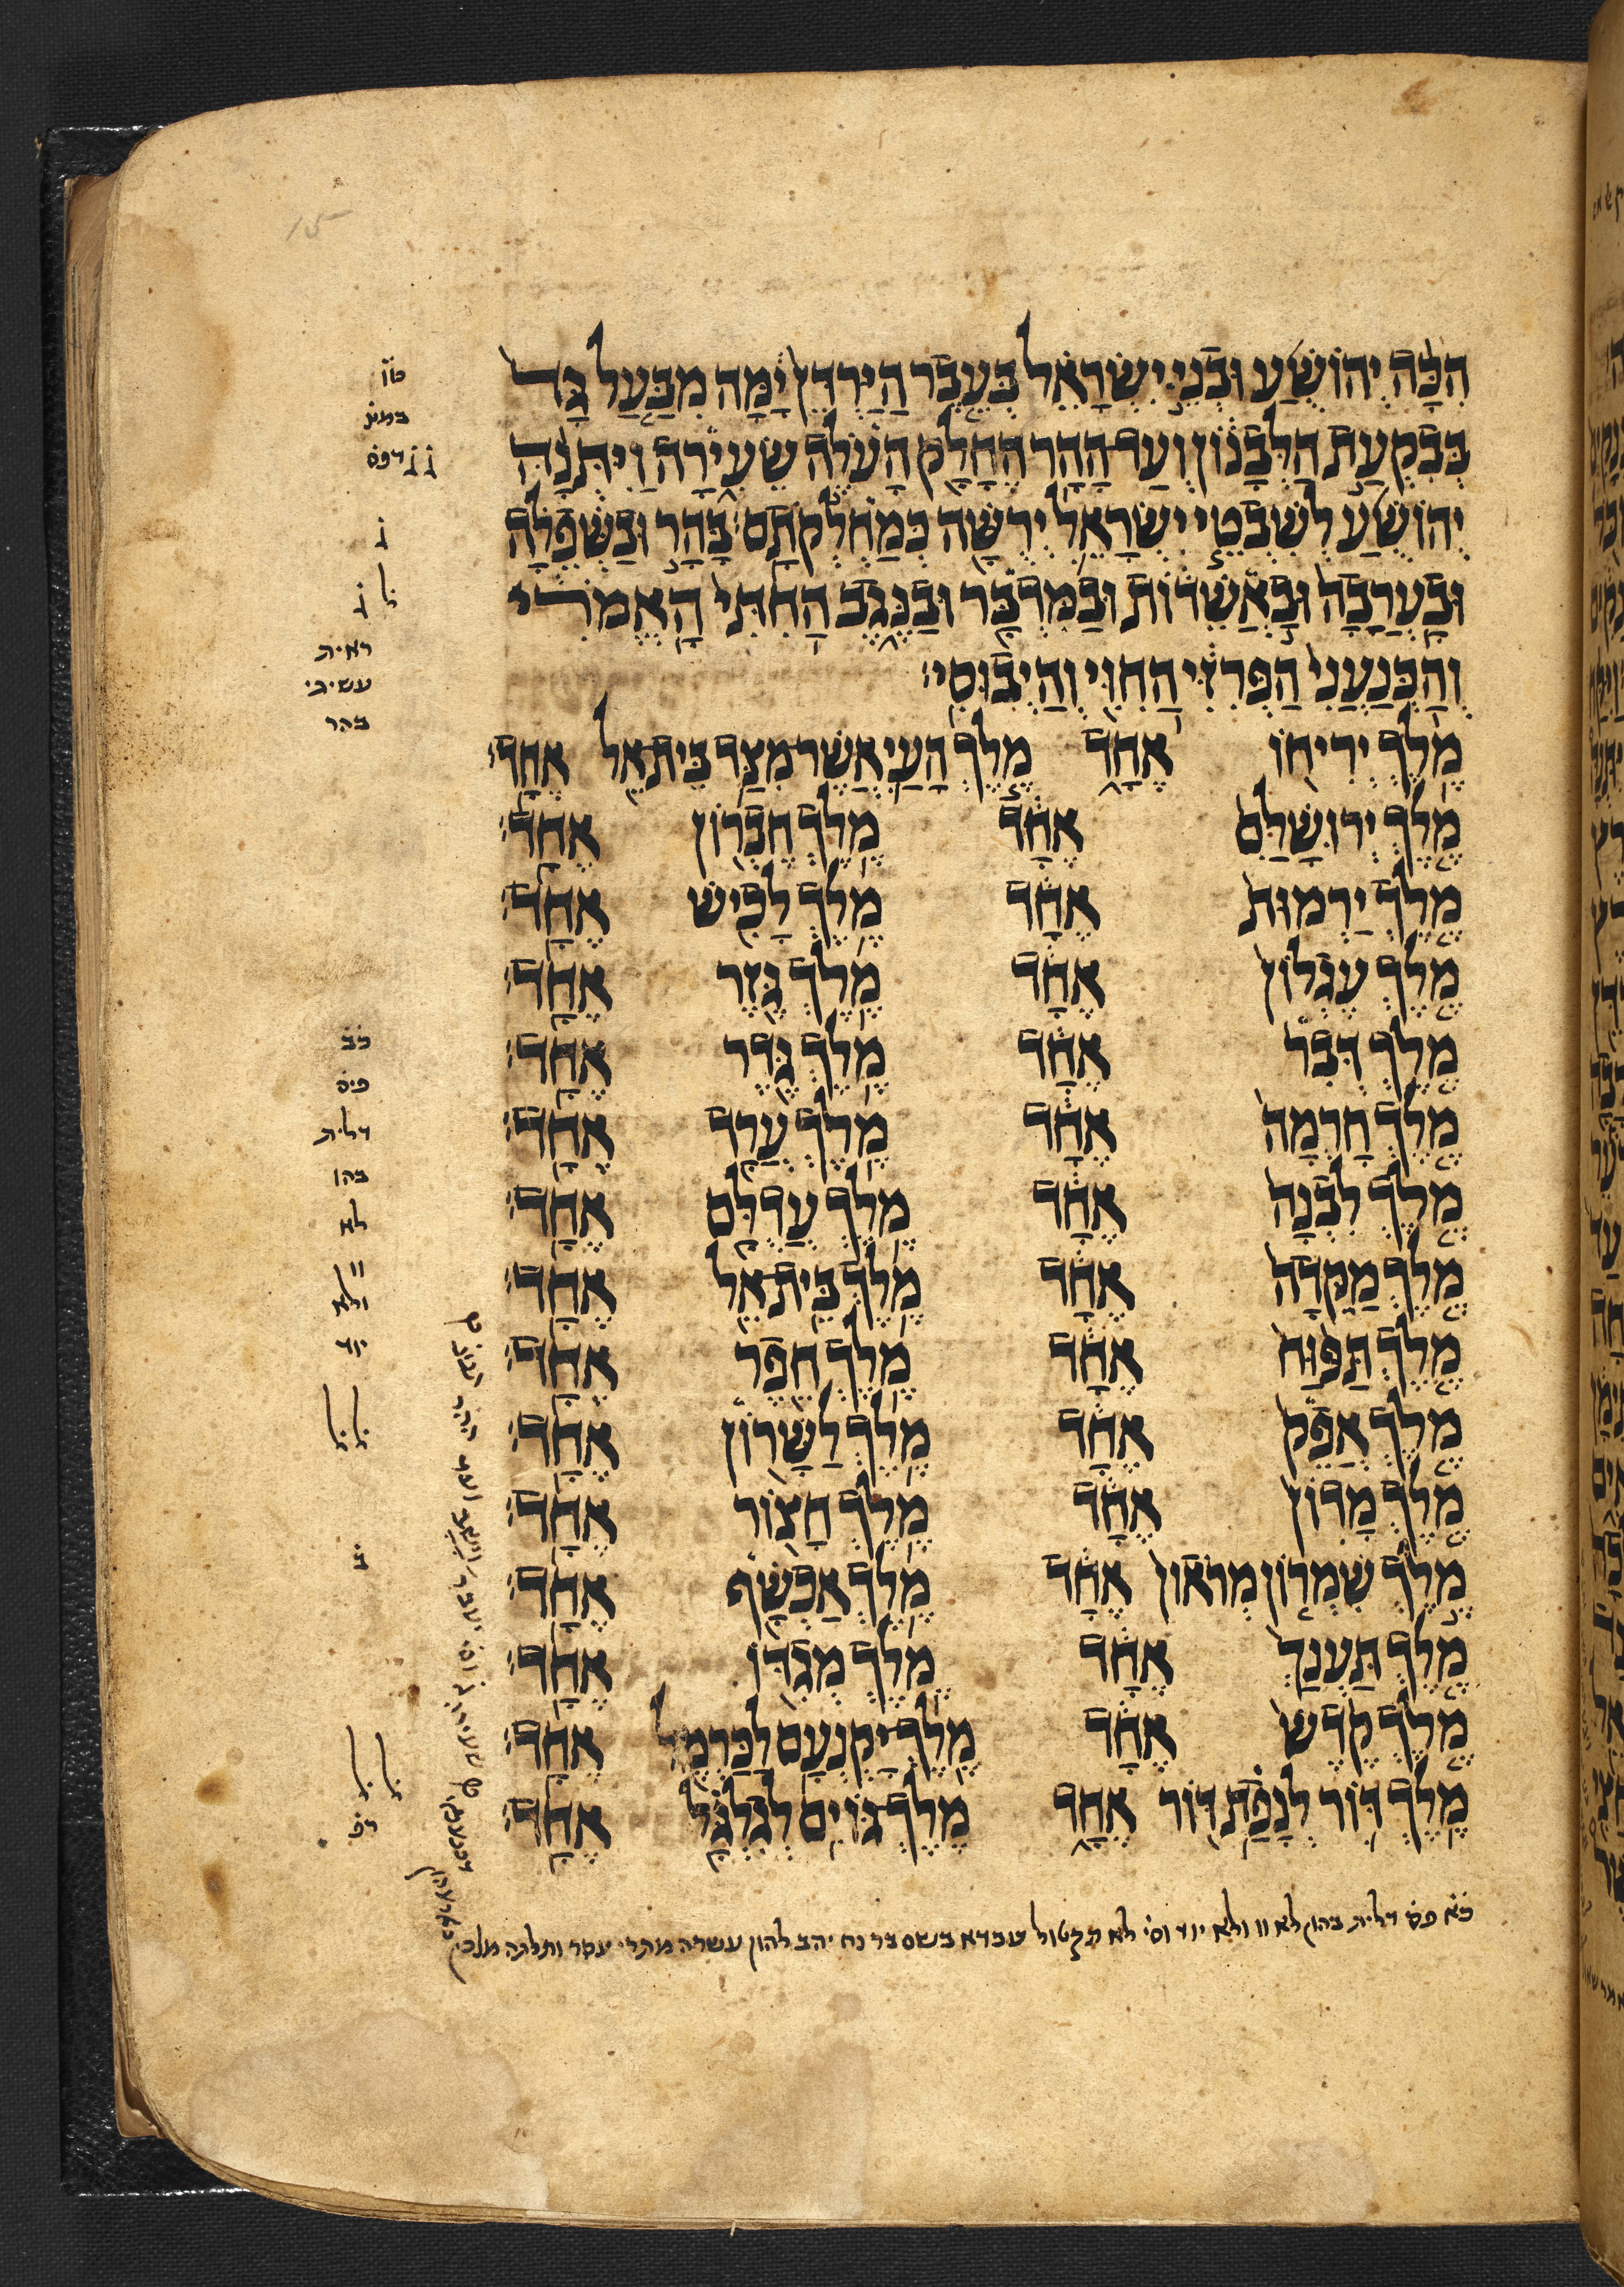 הִכָּה יְהוֹשֻׁעַ וּבְנֵי יִשְׂרָאֵל בְּעֵבֶר הַיַּרְדֵּן יָמָּה מִבַּעַל גָּד
בְּבִקְעַת הַלְּבָנוֹן וְעַד הָהָר הֶחָלָק הָעֹלֶה שֵׂעִירָה וַיִּתְּנָהּ
יְהוֹשֻׁעַ לְשִׁבְטֵי יִשְׂרָאֵל יְרֻשָּׁה כְּמַחְלְקֹתָם׃ בָּהָר וּבַשְּׁפֵלָה
וּבָעֲרָבָה וּבָאֲשֵׁדוֹת וּבַמִּדְבָּר וּבַנֶּגֶב הַחִתִּי הָאֱמֹרִי
וְהַכְּנַעֲנִי הַפְּרִזִּי הַחִוִּי וְהַיְבוּסִי׃
מֶלֶךְ יְרִיחוֹ אֶחָד מֶלֶךְ הָעַי אֲשֶׁר מִצַּד בֵּיתְאֵל אֶחָד׃
מֶלֶךְ יְרוּשָׁלִַם אֶחָד מֶלֶךְ חֶבְרוֹן אֶחָד׃
מֶלֶךְ יַרְמוּת אֶחָד מֶלֶךְ לָכִישׁ אֶחָד׃
מֶלֶךְ עֶגְלוֹן אֶחָד מֶלֶךְ גֶּזֶר אֶחָד׃
מֶלֶךְ דְּבִר אֶחָד מֶלֶךְ גֶּדֶר אֶחָד׃
מֶלֶךְ חָרְמָה אֶחָד מֶלֶךְ עֲרָד אֶחָד׃
מֶלֶךְ לִבְנָה אֶחָד מֶלֶךְ עֲדֻלָּם אֶחָד׃
מֶלֶךְ מַקֵּדָה אֶחָד מֶלֶךְ בֵּיתְאֵל אֶחָד׃
מֶלֶךְ תַּפּוּחַ אֶחָד מֶלֶךְ חֵפֶר אֶחָד׃
מֶלֶךְ אֲפֵק אֶחָד מֶלֶךְ לַשָּׁרוֹן אֶחָד׃
מֶלֶךְ מָדוֹן אֶחָד מֶלֶךְ חָצוֹר אֶחָד׃
מֶלֶךְ שִׁמְרוֹן מְראוֹן אֶחָד מֶלֶךְ אַכְשָׁף אֶחָד׃
מֶלֶךְ תַּעְנַךְ אֶחָד מֶלֶךְ מְגִדּוֹ אֶחָד׃
מֶלֶךְ קֶדֶשׁ אֶחָד מֶלֶךְ יָקְנְעָם לַכַּרְמֶל אֶחָד׃
מֶלֶךְ דּוֹר לְנָפַת דּוֹר אֶחָד מֶלֶךְ גּוֹיִם לְגִלְגָּל אֶחָד׃
פס דלית בהון לא וו ולא יוד וס לא תקטול עבדא בשם בר נח יהב להון עשרה מתרי עסר ותלתה מלכין
ל
ל
ראית
בהר
כב
פס
דלית
בהו
לא
וו
ולא
יוד
ל ל
ל ל
15